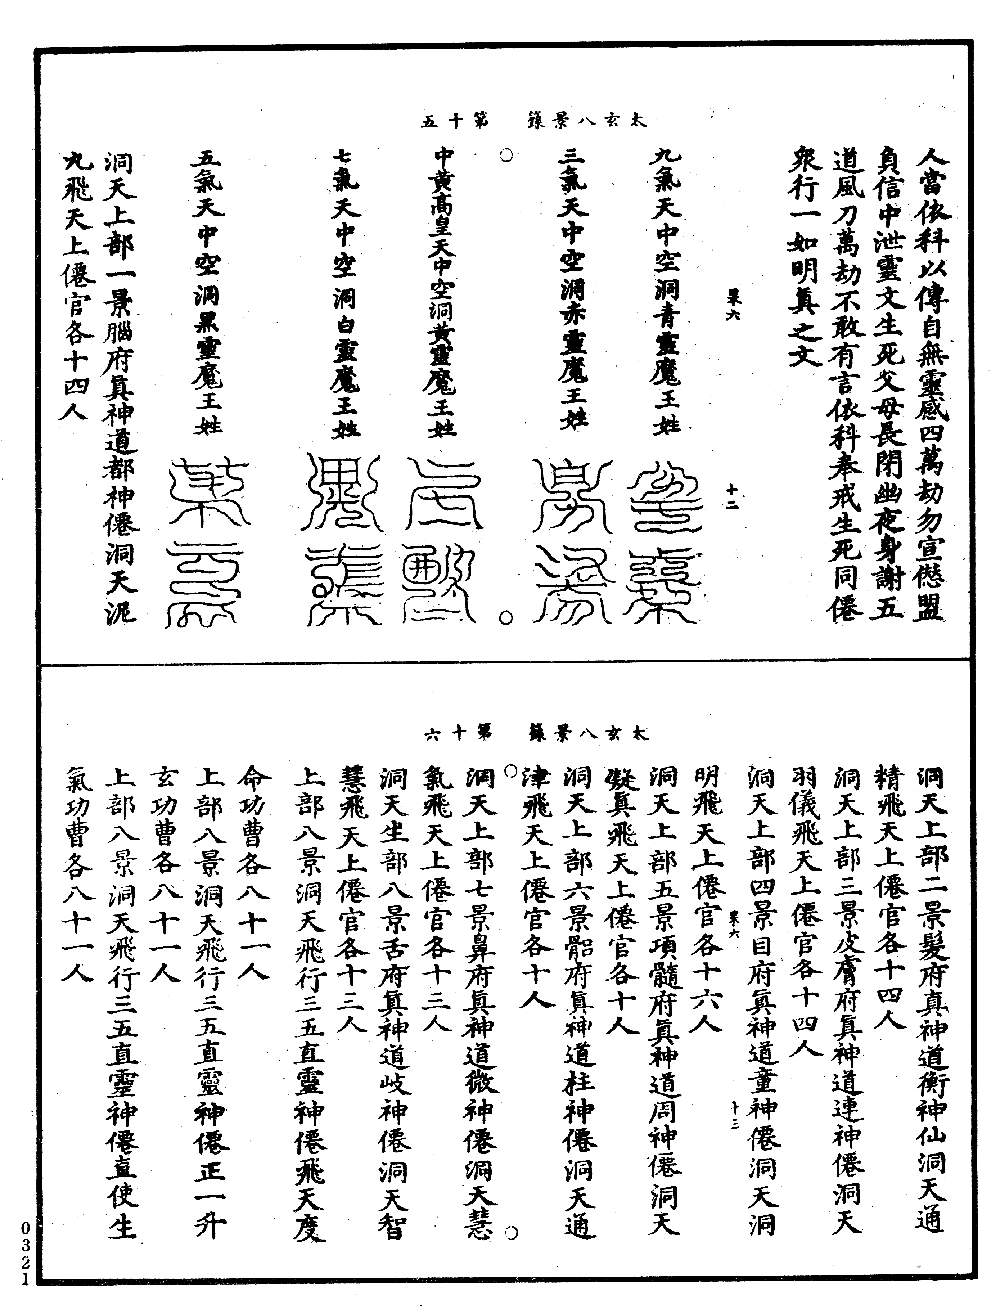 太玄八景籙　第十五
人當依科以傳自無靈感四萬劫勿宣僁盟
負信中泄靈文生死父母長閉幽夜身謝五
道風刀萬劫不敢有言依科奉戒生死同僊
衆行一如明眞之文
杲六　十二
九氣天中空洞青靈魔王姓
三氣天中空洞赤靈魔王姓
中黃高皇天中空洞黃靈魔王姓
七氣天中空洞白靈魔王姓
五氣天中空洞黑靈魔王姓
洞天上部一景腦府眞神道都神僊洞天泥
丸飛天上僊官各十四人
太玄八景籙　第十六
洞天上部二景髮府真神道衡神仙洞天通
精飛天上僊官各十四人
洞天上部三景皮膚府眞神道連神僊洞天
羽儀飛天上僊官各十四人
洞天上部四景目府眞神道童神僊洞天洞
明飛天上僊官各十六人
杲六　十三
洞天上部五景項髓府眞神道周神僊洞天
凝真飛天上僊官各十人
洞天上部六景膂府眞神道柱神僊洞天通
津飛天上僊官各十人
洞天上部七景鼻府眞神道微神僊洞天慧
氣飛天上僊官各十三人
洞天生部八景舌府眞神道岐神僊洞天智
慧飛天上僊官各十三人
上部八景洞天飛行三五直靈神僊飛天度
命功曹各八十一人
上部八景洞天飛行三五直靈神僊正一升
玄功曹各八十一人
上部八景洞天飛行三五直靈神僊直使生
氣功曹各八十一人
0321